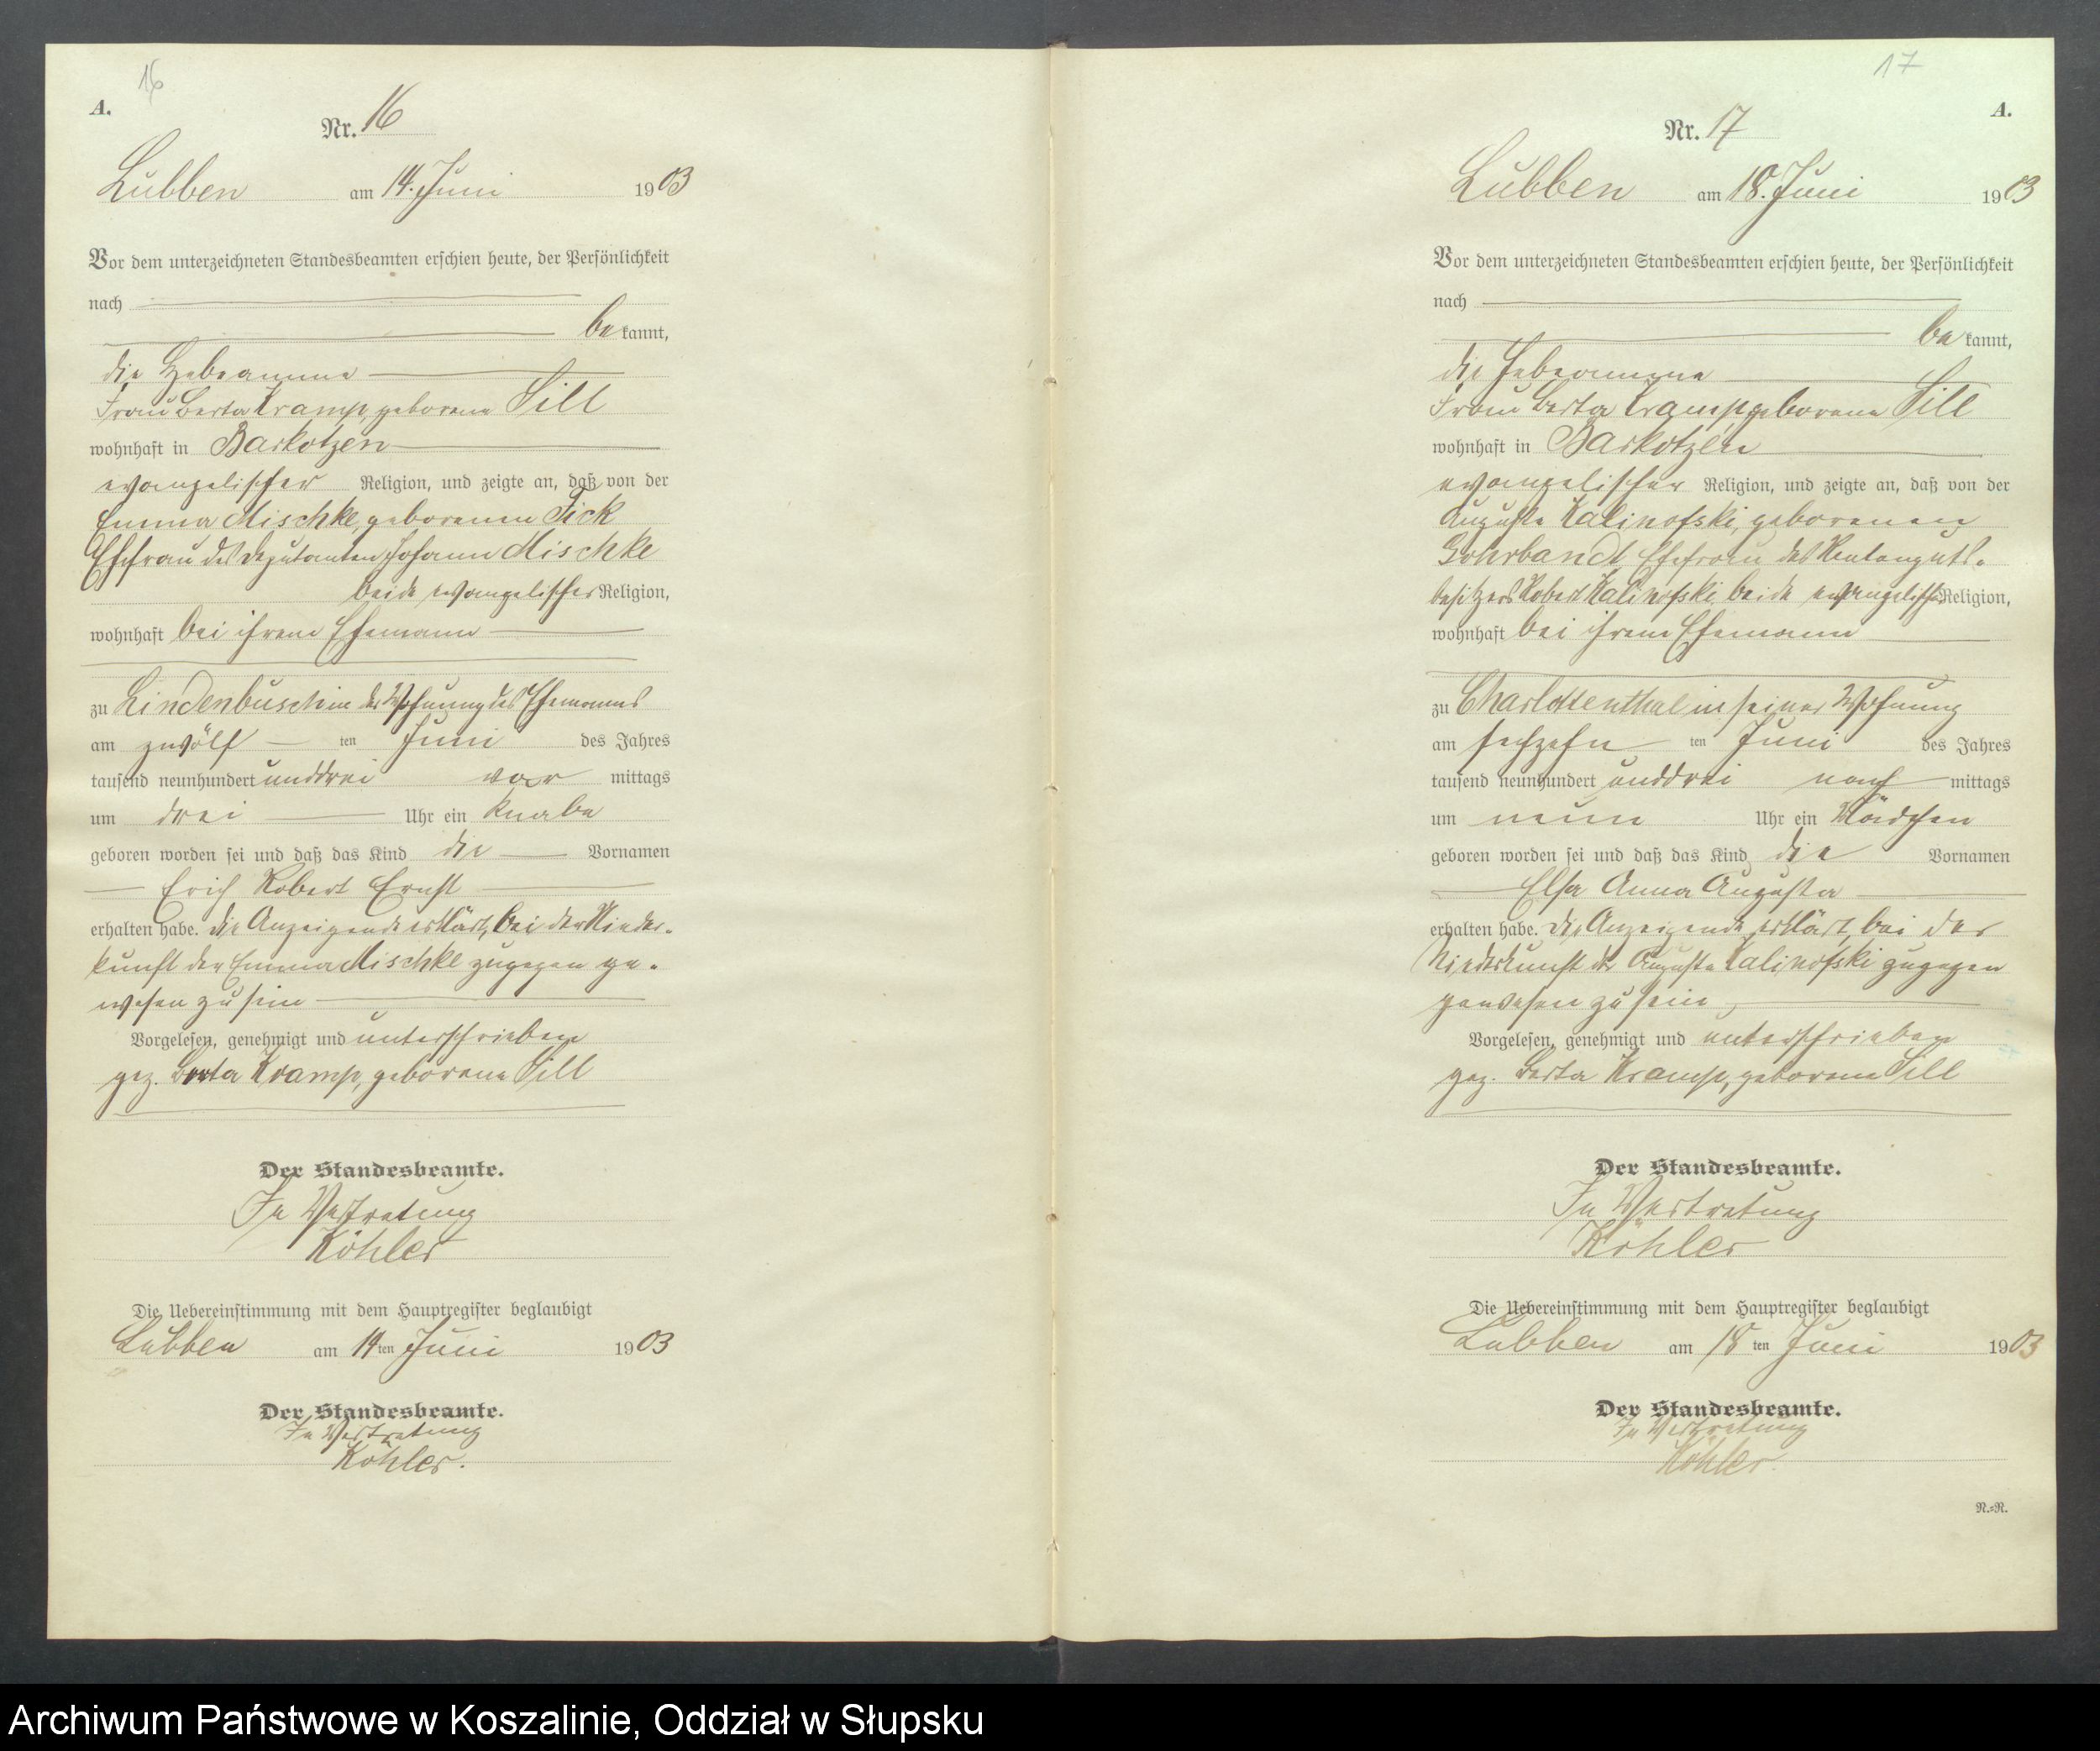 16
A.
Nr. 16
Lubben am 14. Juni 1903
Vor dem unterzeichneten Standesbeamten erschien heute, der Persönlichkeit
nach
bekannt,
die Hebeamme
Frau Berta Kramp, geborene Sill
wohnhaft in Barkotzen
evangelischer Religion, und zeigte an, daß von der
Emma Mischke, geborenen Fick
Ehefrau des Deputanten Johann Mischke
beide evangelischer Religion,
wohnhaft bei ihrem Ehemann
zu Lindenbusch in der Wohnung des Ehemanns
am zwölf ten Juni des Jahres
tausend neunhundert unddrei vor mittags
um drei Uhr ein Knabe
geboren worden sei und daß das Kind die Vornamen
Erich Robert Ernst
erhalten habe. Die Anzeigende erklärt, bei der Nieder-
kunft der Emma Mischke zugegen ge-
wesen zu sein
Vorgelesen, genehmigt und unterschrieben
gez. Berta Kramp, geborene Sill
Der Standesbeamte.
In Vertretung
Köhler
Die Uebereinstimmung mit dem Hauptregister beglaubigt
Lubben am 14ten Juni 1903
Der Standesbeamte.
In Vertretung
Köhler.
17
A.
Nr. 17
Lubben am 18. Juni 1903
Vor dem unterzeichneten Standesbeamten erschien heute, der Persönlichkeit
nach
bekannt,
die Hebeamme
Frau Berta Kramp geborene Sill
wohnhaft in Barkotzen
evangelischer Religion, und zeigte an, daß von der
Auguste Kalinofski, geborenen
Gohrbandt Ehefrau des Rentenguts-
besitzers Robert Kalinofski beide evangelischer Religion,
wohnhaft bei ihrem Ehemann
zu Charlottenthal in seiner Wohnung
am sechzehn ten Juni des Jahres
tausend neunhundert unddrei nach mittags
um neun Uhr ein Mädchen
geboren worden sei und daß das Kind die Vornamen
Elsa Anna Augusta
erhalten habe. Die Anzeigende erklärt, bei der
Niederkunft der Auguste Kalinofski zugegen
gewesen zu sein
Vorgelesen, genehmigt und unterschrieben
gez. Berta Kramp, geborene Sill
Der Standesbeamte.
In Vertretung
Köhler
Die Uebereinstimmung mit dem Hauptregister beglaubigt
Lubben am 18ten Juni 1903
Der Standesbeamte.
In Vertretung
Köhler.
N.=R.
Archiwum Państwowe w Koszalinie, Oddział w Słupsku